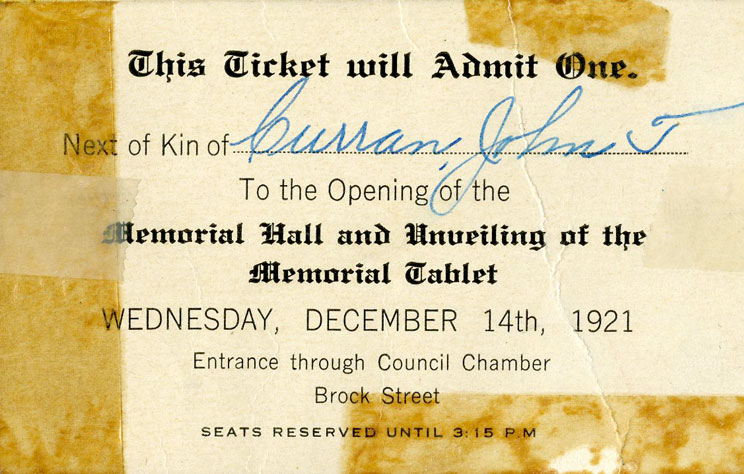 This Ticket will Admit One.
Next of Kin of Curran, John T
To the Opening of the
Memorial Hall and Unveiling of the
Memorial Tablet
WEDNESDAY, DECEMBER 14th, 1921
Entrance through Council Chamber
Brock Street
SEATS RESERVED UNTIL 3:15 P.M